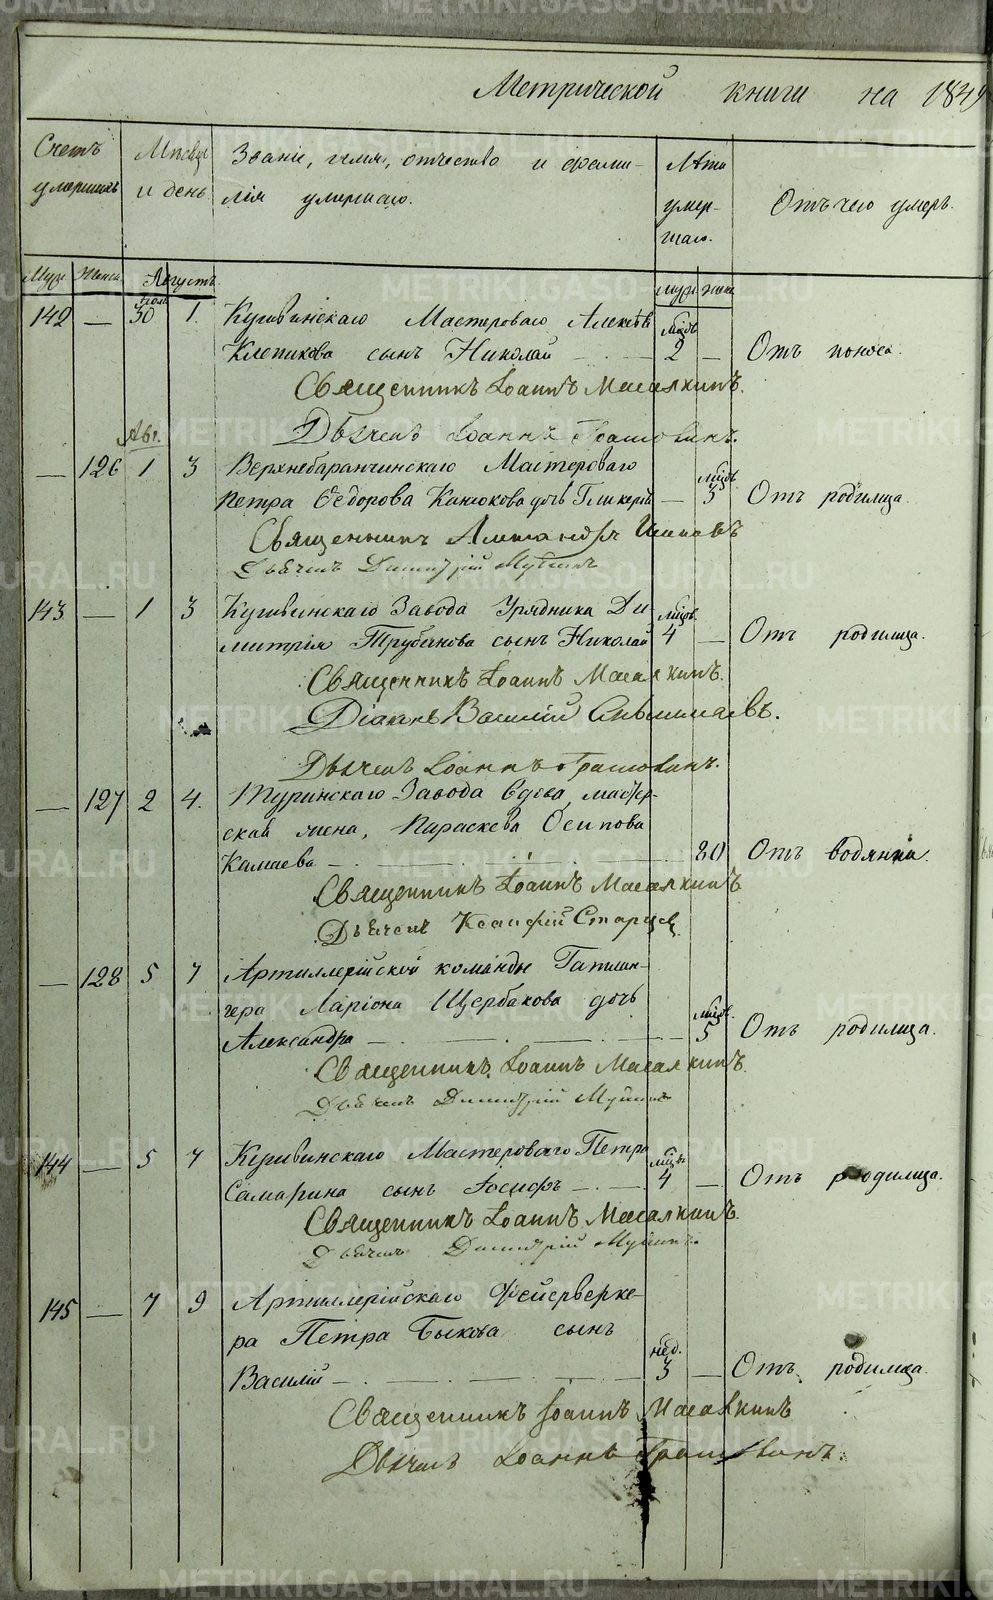 Метрической книги на 1849
Счетъ умершихъ
Мѣсяцъ и день
Званіе, имя, отчество и фами-
лія умершаго.
Лѣта умер-
шаго.
Отъ чего умеръ.
Муж. Женск. Августъ муж. жен.
Іюль
142 — 30 1. Кушвинскаго Мастероваго Алексѣя мѣсяц.
Клепикова сынъ Николай — 2 — Отъ поноса.
Священникъ Іоаннъ Масалкинъ.
Дьячекъ Іоаннъ
Авг.
— 126 1 3 Верхнебаранчинскаго Мастероваго мѣсяц.
Петра Ѳедорова Канюкова дочь Гликерія — 3 Отъ родимца.
Священникъ Александръ
Дьячекъ Димитрій
143 — 1 3 Кушвинскаго Завода Урядника Ди- мѣсяц.
митрія Трубинова сынъ Николай 4 — Отъ родимца.
Священникъ Іоаннъ Масалкинъ.
Діаконъ Василій
Дьячекъ Іоаннъ
— 127 2 4. Туринскаго Завода вдова, мастер-
ская жена, Параскева Осипова
Камаева — 80 Отъ водянки.
Священникъ Іоаннъ Масалкинъ
Дьячекъ Ксанфій Старцев
— 128 5 7 Артиллерійской команды Гатлан-
гера Ларіона Щербакова дочь мѣсяц.
Александра — 5 Отъ родимца.
Священникъ Іоаннъ Масалкинъ.
Дьячекъ Димитрій
144 — 5 7 Кушвинскаго Мастероваго Петра мѣсяц.
Самарина сынъ Іосифъ — 4 — Отъ родимца.
Священникъ Іоаннъ Масалкинъ.
Дьячекъ Димитрій
145 — 7 9 Артиллерійскаго Фейерверке-
ра Петра Быкова сынъ нед.
Василій — 3 — Отъ родимца.
Священникъ Іоаннъ Масалкинъ
Дьячекъ Іоаннъ
METRIKI.GASO-URAL.RU